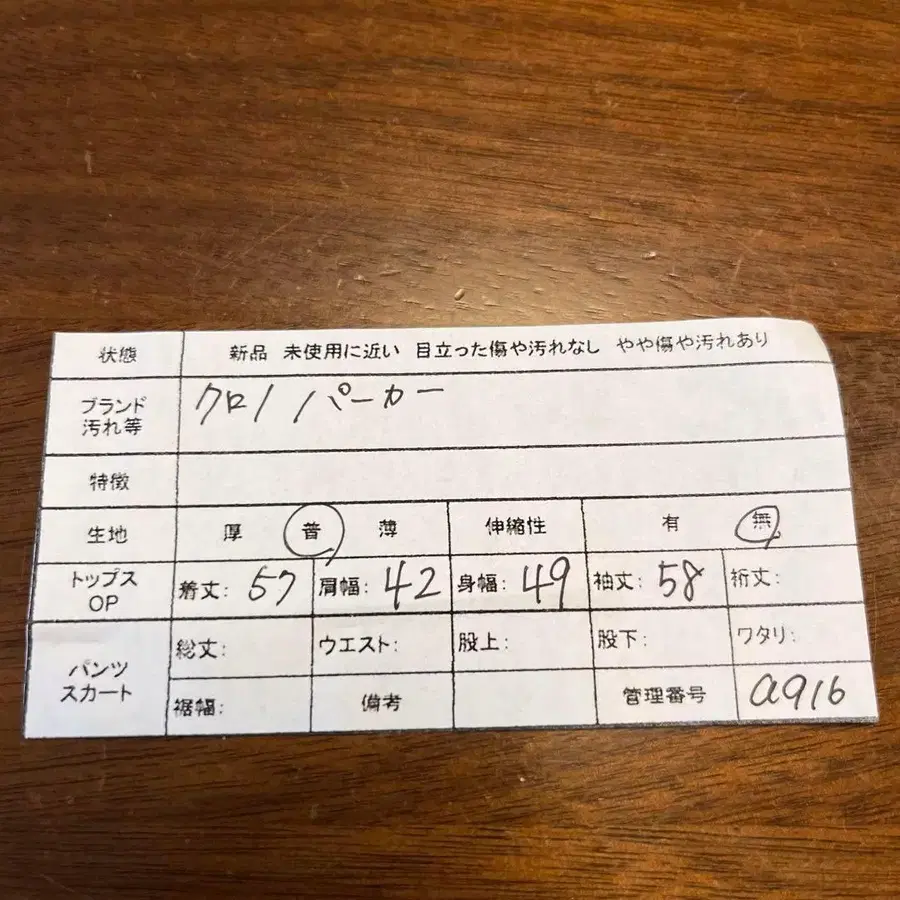 状態 新品 未使用に近い 目立った傷や汚れなし やや傷や汚れあり
ブランド
汚れ等 クロノ パーカー
特徴
生地 厚 普 薄 伸縮性 有 無
トップス
OP 着丈: 57 肩幅: 42 身幅: 49 袖丈: 58 裄丈:
パンツ
スカート 総丈: ウエスト: 股上: 股下: ワタリ:
裾幅: 備考 管理番号 a916